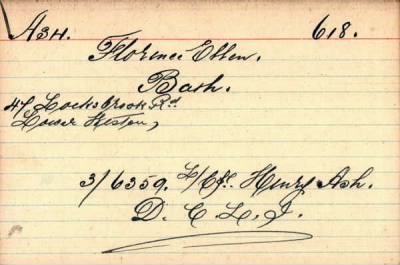 Ash. 618.
Florence Ellen.
Bath.
47 Locksbrook Rd
Lower Weston,
3/6359. L/Cpl. Henry Ash.
D. C. L. I.